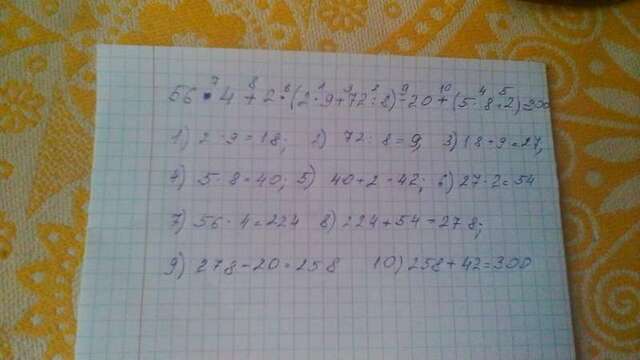 56 · 4 + 2 · (2 · 9 + 72 : 8) - 20 + (5 · 8 + 2) = 300
1) 2 · 9 = 18; 2) 72 : 8 = 9, 3) 18 + 9 = 27,
4) 5 · 8 = 40; 5) 40 + 2 = 42; 6) 27 · 2 = 54
7) 56 · 4 = 224 8) 224 + 54 = 278;
9) 278 - 20 = 258 10) 258 + 42 = 300